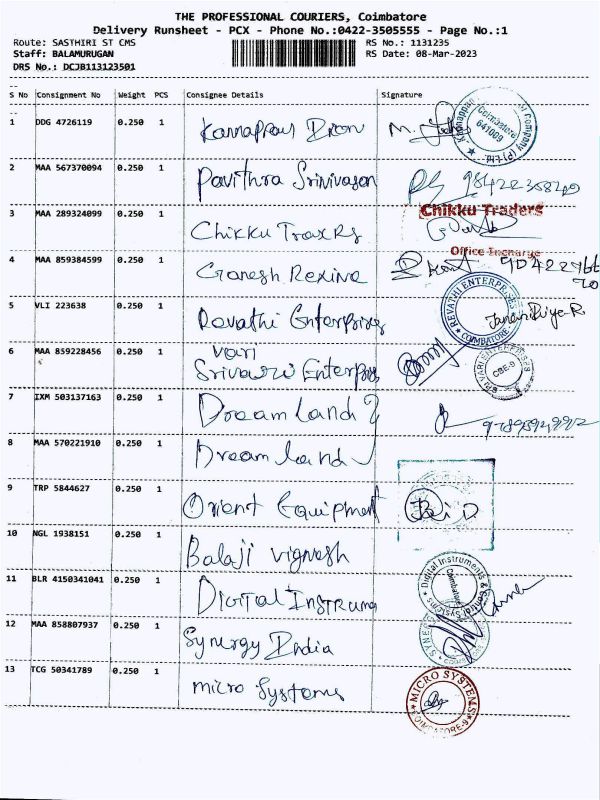 THE PROFESSIONAL COURIERS, Coimbatore
Delivery Runsheet - PCX - Phone No.:0422-3505555 - Page No.:1
Route: SASTHIRI ST CMS RS No.: 1131235
Staff: BALAMURUGAN RS Date: 08-Mar-2023
DRS No.: DCJB113123501
S No Consignment No Weight PCS Consignee Details Signature
1 DDG 4726119 0.250 1 Kannappan Iron
Kannappan Company (P) Ltd. Coimbatore 641009
2 MAA 567370094 0.250 1 Pavithra Srinivasan
3 MAA 289324099 0.250 1 Chikku Traxrs
Chikku Traders
Office Incharge
4 MAA 859384599 0.250 1 Ganesh Rexine
5 VLI 223638 0.250 1 Revathi Enterprises
REVATHI ENTERPRISES COIMBATORE
6 MAA 859228456 0.250 1 vari
Srivari Enterprises
CBE-9
7 IXM 503137163 0.250 1 Dream Land
8 MAA 570221910 0.250 1 Dream Land
9 TRP 5844627 0.250 1 Orient Equipment
10 NGL 1938151 0.250 1 Balaji vignesh
11 BLR 4150341041 0.250 1 Digital Instrum
Digital Instruments & Control Systems Coimbatore
12 MAA 858807937 0.250 1 Synergy India
13 TCG 50341789 0.250 1 micro Systems
MICRO SYSTEMS COIMBATORE-9